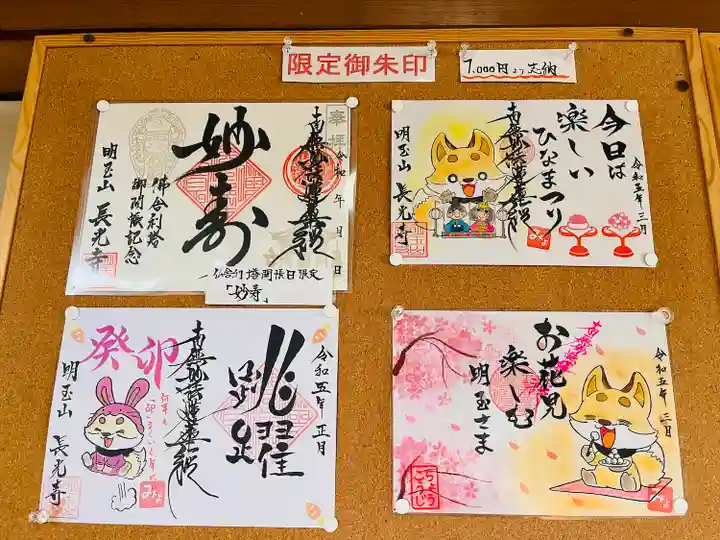 限定御朱印
1,000円より志納
奉拝
令和 年 月 日
南無妙法蓮華経
妙寿
佛舎利塔
御開帳記念
明玉山 長光寺
仏舎利塔開帳日限定
「妙寿」
今日は
楽しい
ひなまつり
令和五年三月
南無妙法蓮華経
明玉山 長光寺
令和五年 正月
跳躍
南無妙法蓮華経
癸卯
明玉山 長光寺
お花見
楽しむ
明玉さま
令和五年 三月
南無妙法蓮華経
ちょうこうじ